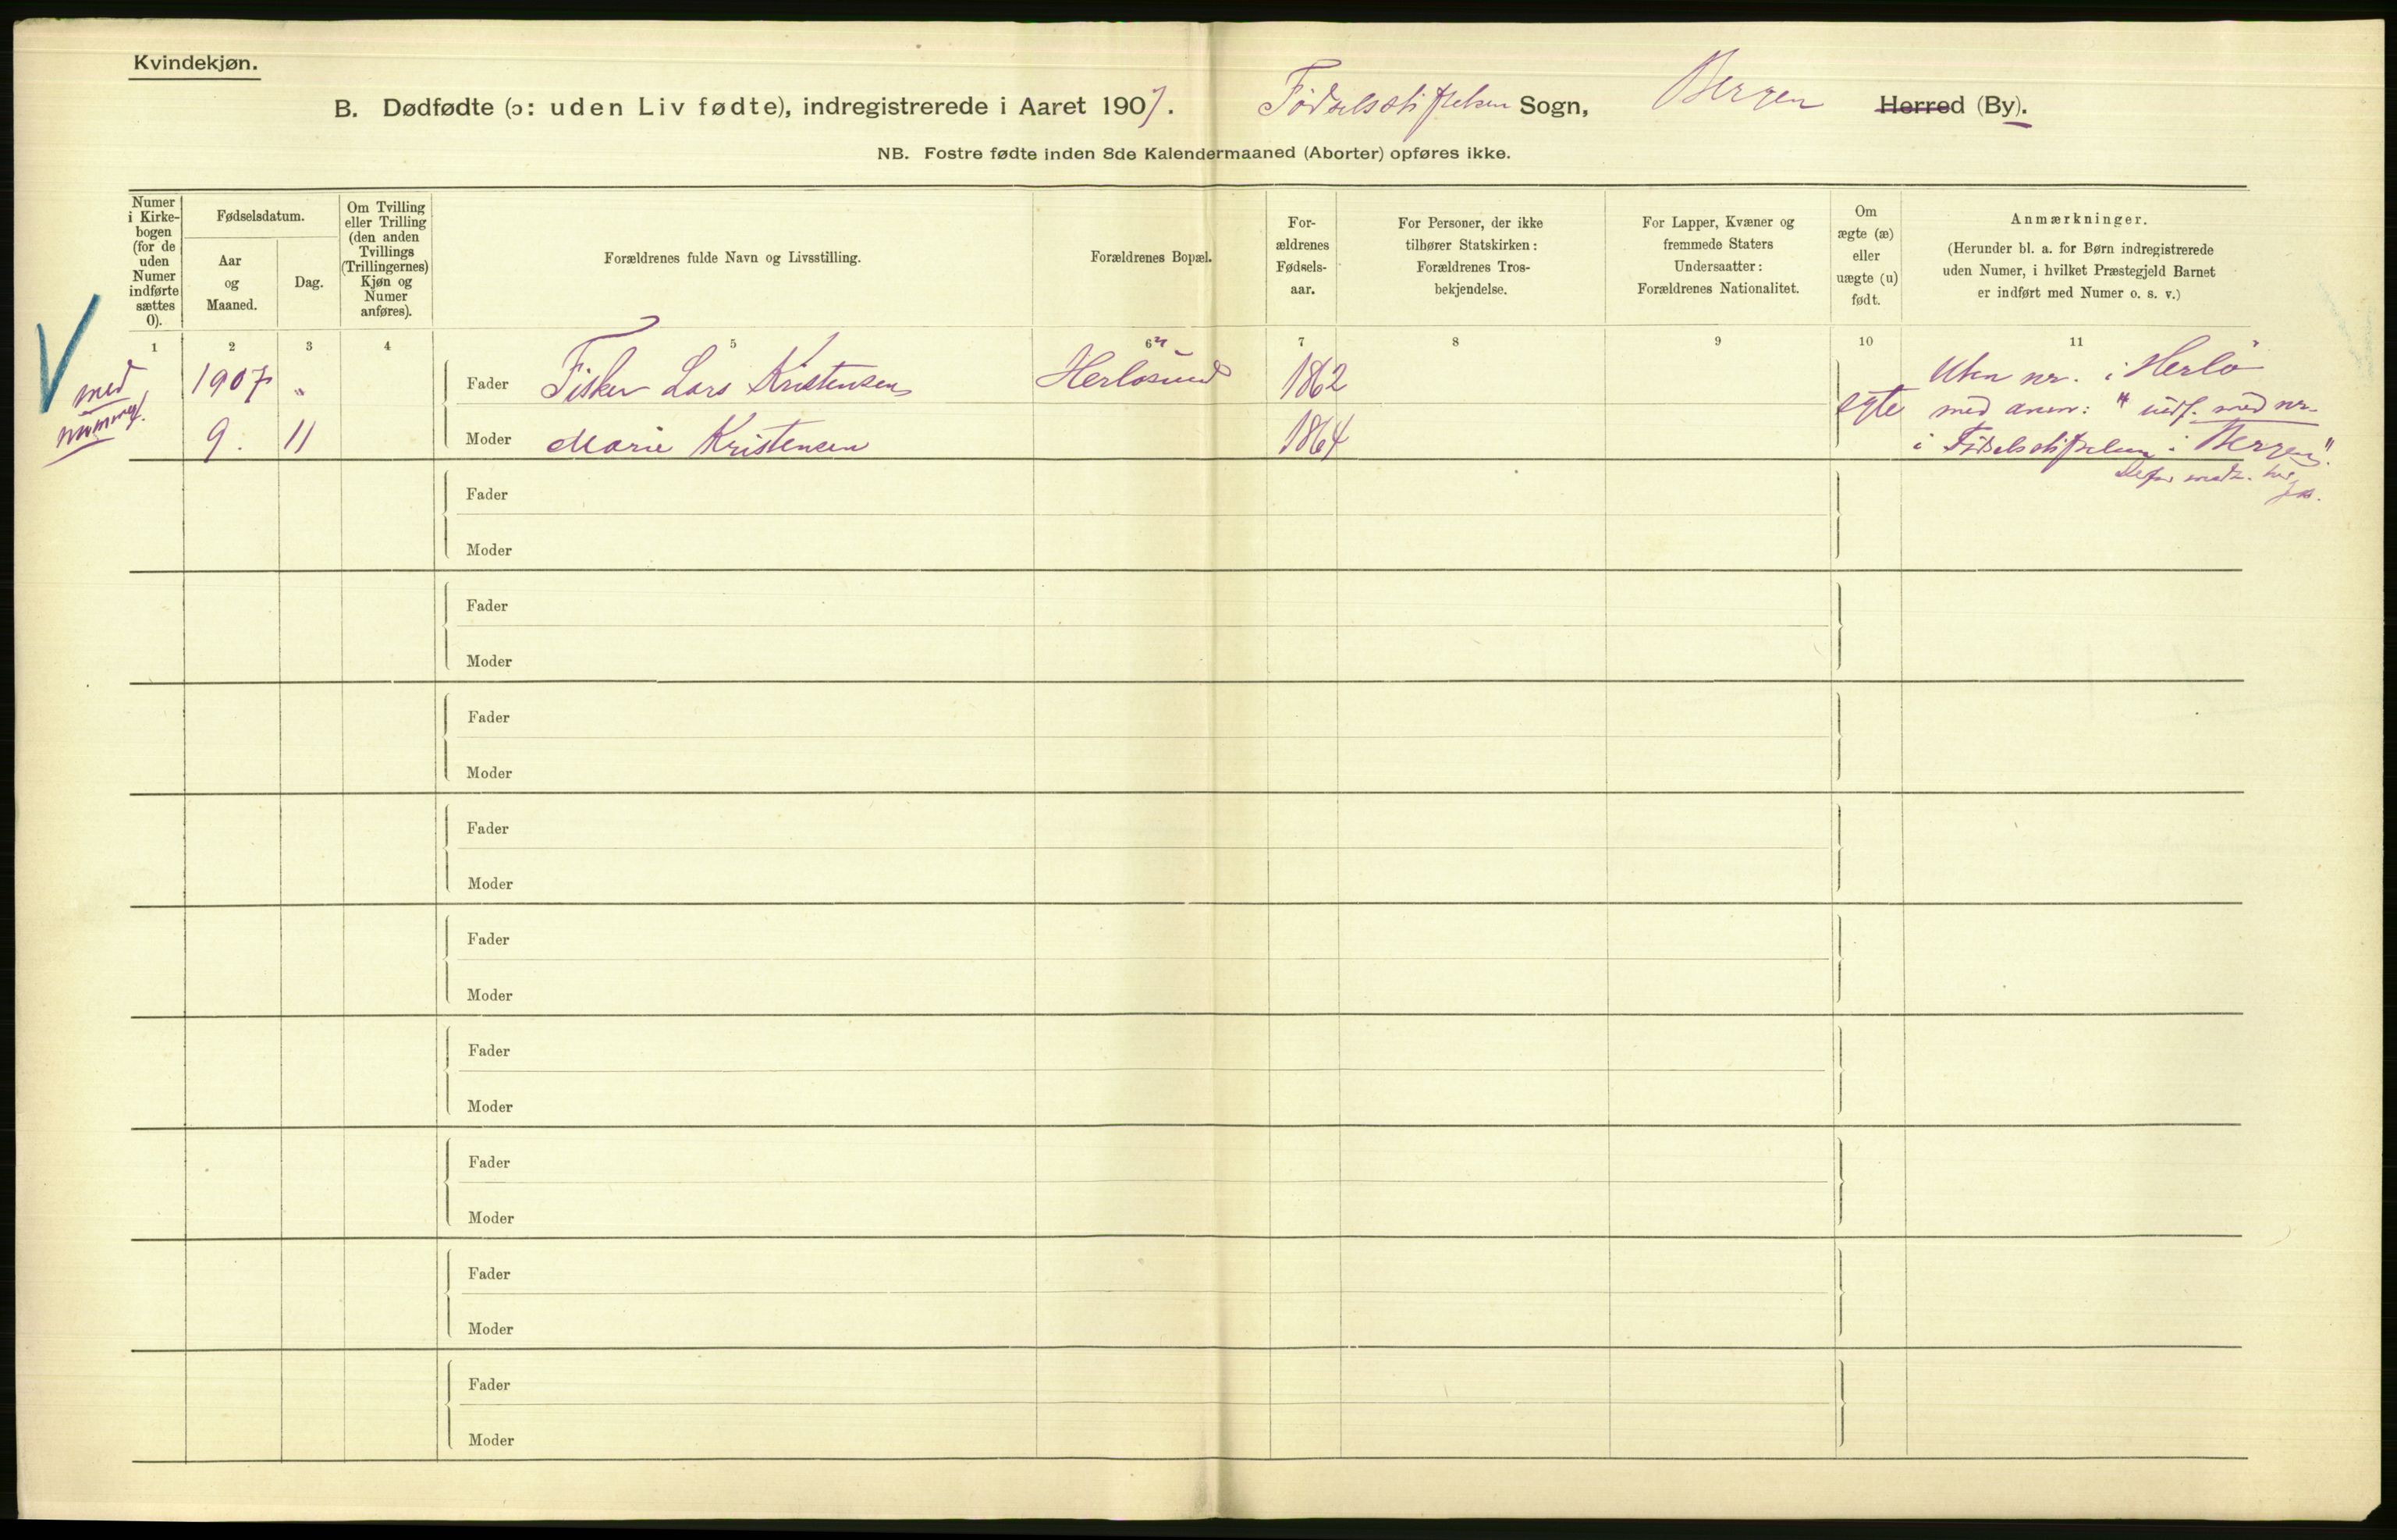 Kvindekjøn.
B. Dødfødte (ɔ: uden Liv fødte), indregistrerede i Aaret 1907. Fødselsstiftelsen Sogn, Bergen Herred (By).
NB. Fostre fødte inden 8de Kalendermaaned (Aborter) opføres ikke.
Numer
i Kirke-
bogen
(for de
uden
Numer
indførte
sættes
0).
Fødselsdatum.
Aar
og
Maaned.
Dag.
Om Tvilling
eller Trilling
(den anden
Tvillings
(Trillingernes)
Kjøn og
Numer
anføres).
Forældrenes fulde Navn og Livsstilling.
Forældrenes Bopæl.
For-
ældrenes
Fødsels-
aar.
For Personer, der ikke
tilhører Statskirken:
Forældrenes Tros-
bekjendelse.
For Lapper, Kvæner og
fremmede Staters
Undersaatter:
Forældrenes Nationalitet.
Om
ægte (æ)
eller
uægte (u)
født.
Anmærkninger.
(Herunder bl. a. for Børn indregistrerede
uden Numer, i hvilket Præstegjeld Barnet
er indført med Numer o. s. v.)
1 2 3 4 5 6 7 8 9 10 11
med
nummer!
1907 "
9. 11
Fader Fisker Lars Kristensen Herløsund 1862
Moder Marie Kristensen 1864
egte
Uten nr. i Herlø
med anm: " indf. med nr.
i Fødselsstiftelsen i Bergen".
Fader
Moder
Fader
Moder
Fader
Moder
Fader
Moder
Fader
Moder
Fader
Moder
Fader
Moder
Fader
Moder
Fader
Moder